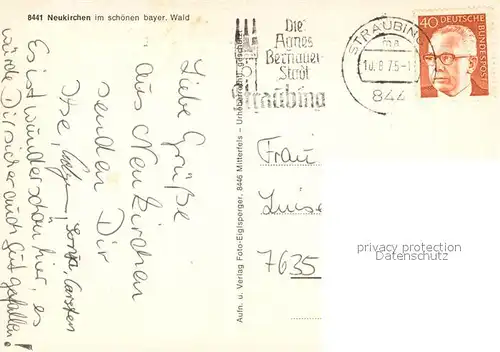 8441 Neukirchen im schönen bayer. Wald
Liebe Grüße
senden Dir
aus Neukirchen
Ilse, Sonja, Carsten
Es ist wunderschön hier, es
würde Dir sicher auch gut gefallen!
Aufn. u. Verlag Foto-Eiglsperger, 8446 Mitterfels – Urheberrechtl. geschützt
Die
Agnes
Bernauer
Stadt
Straubing
STRAUBING
ma
10.8.75-1
844
40 DEUTSCHE BUNDESPOST
Frau
Luise
7635
privacy protection
Datenschutz